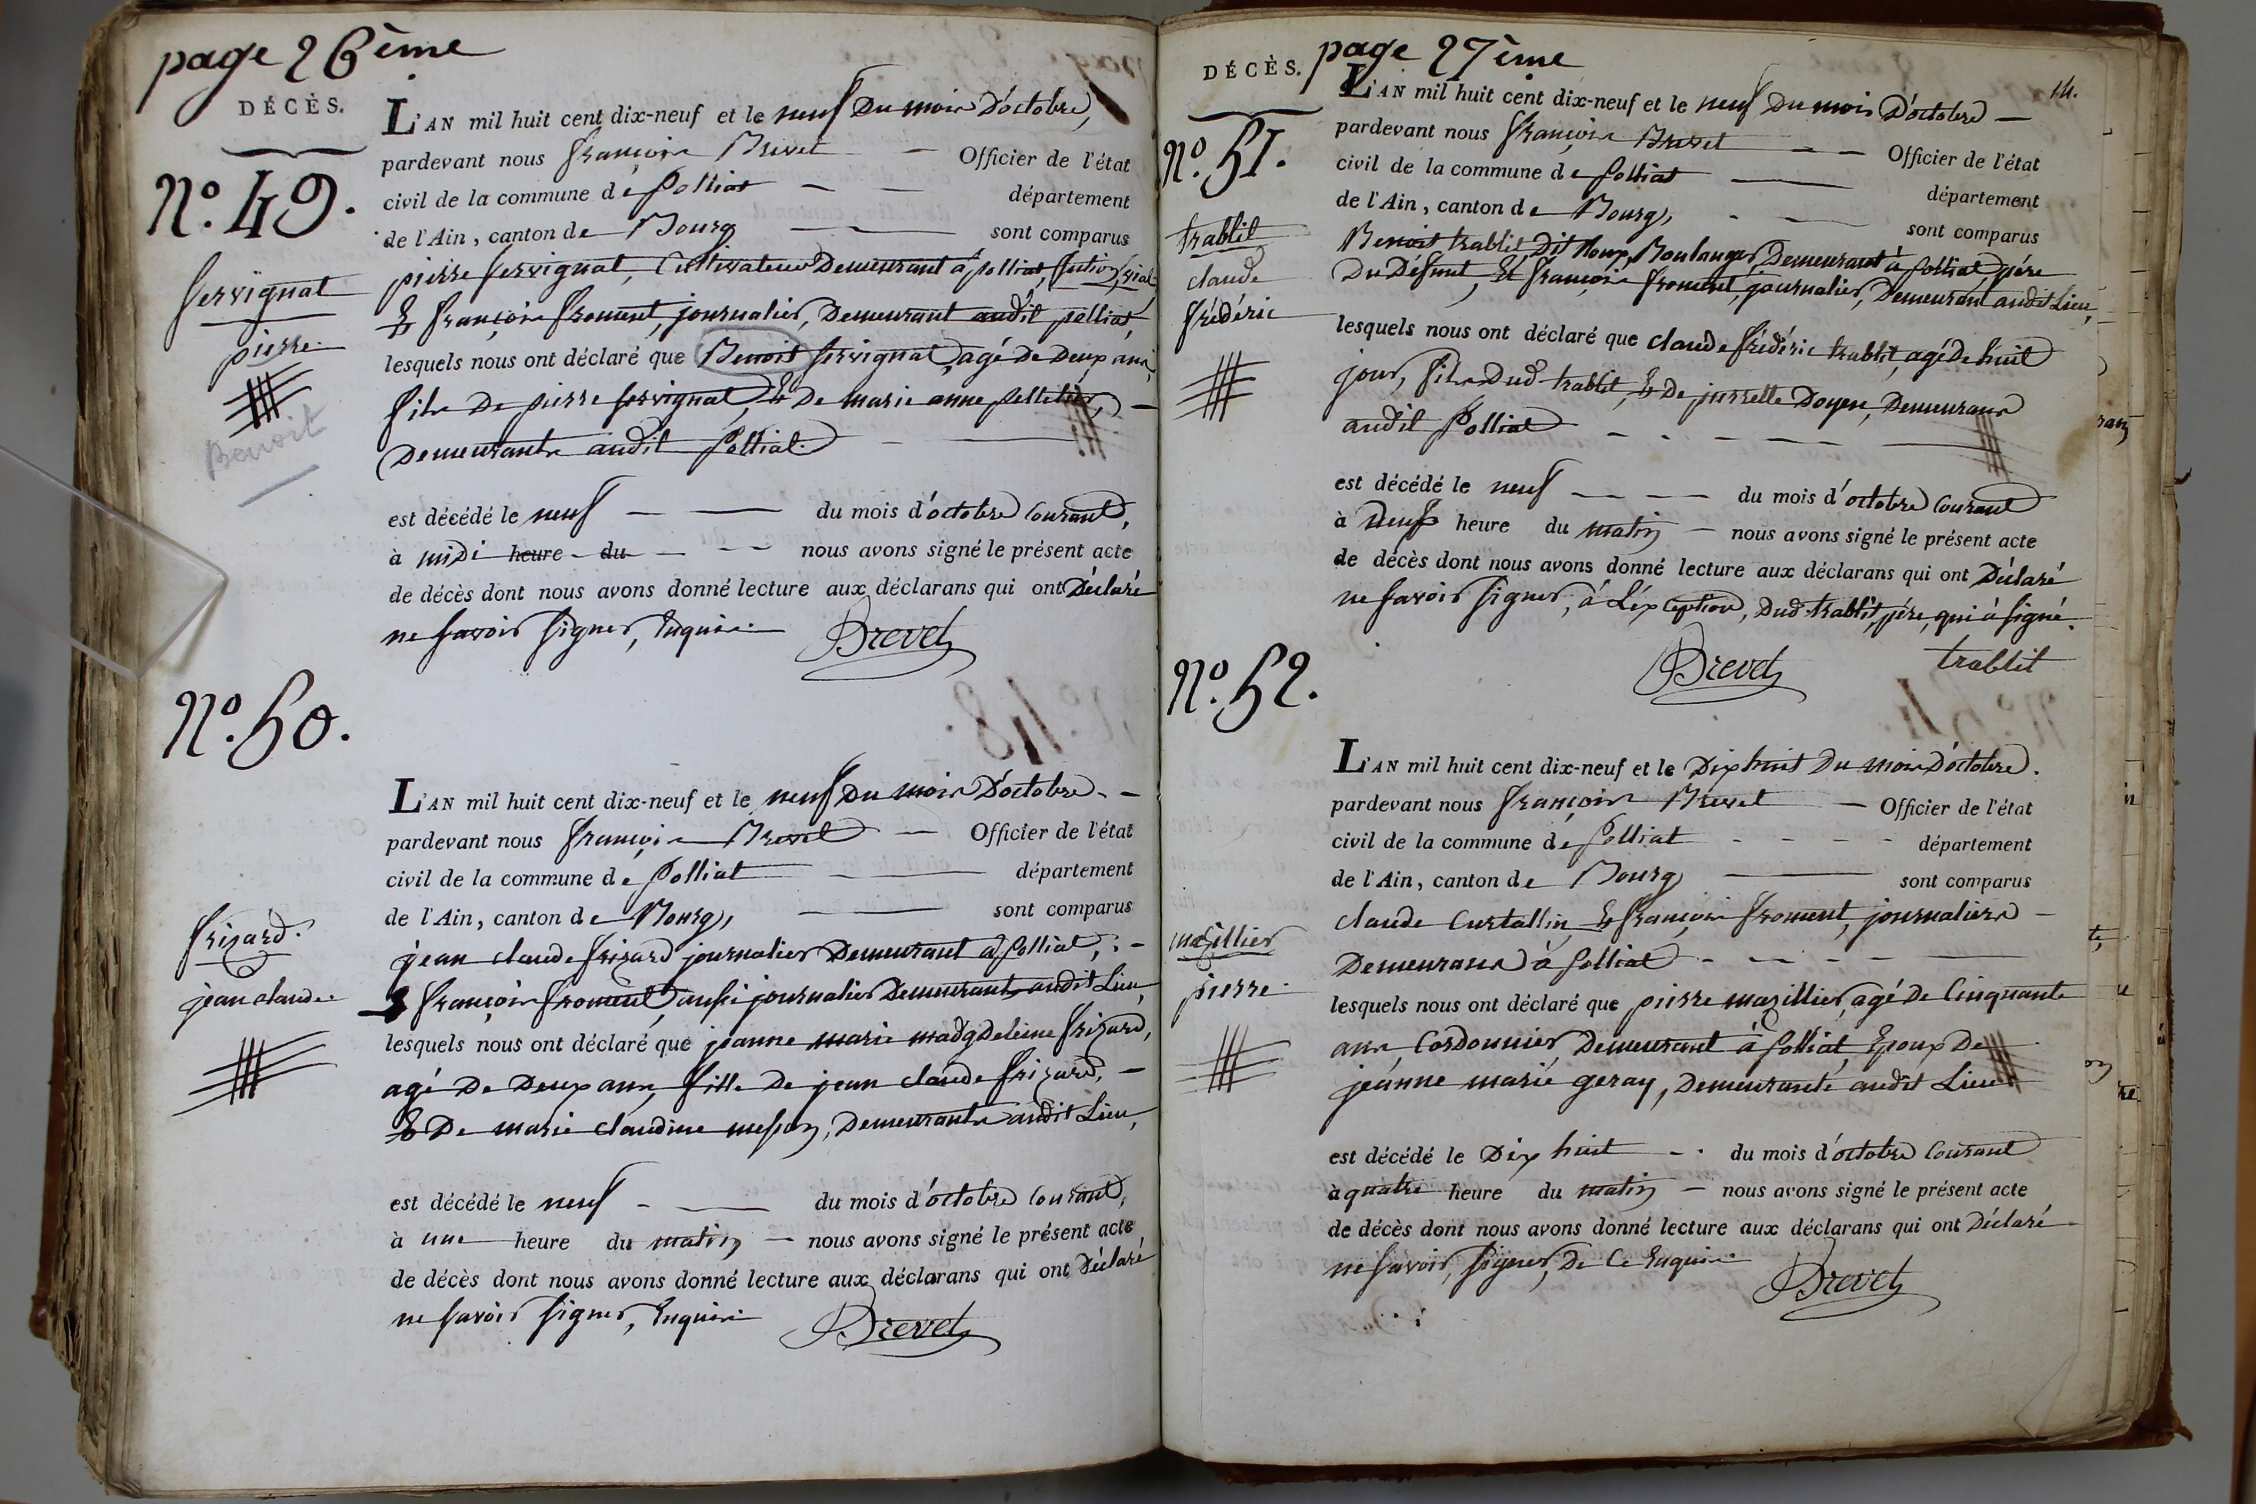 page 26ème
DÉCÈS.
N.º 49.
Servignat
pierre.
Benoit
L'AN mil huit cent dix-neuf et le neuf Du mois D'octobre,
pardevant nous françois Brevet — Officier de l'état
civil de la commune de Polliat — — département
de l'Ain, canton de Bourg — sont comparus
pierre Servignat, Cultivateur Demeurant à polliat,
& françois froment, journalier, Demeurant audit polliat,
lesquels nous ont déclaré que Benoit Servignat, agé De Deux ans,
fils De pierre Servignat, & De marie anne pelletier, —
Demeurants audit Polliat. — —
est décédé le neuf — — du mois d'octobre Courant,
à midi heure du — — — nous avons signé le présent acte
de décès dont nous avons donné lecture aux déclarans qui ont Déclaré
ne Savoir Signer, Enquis. Brevet
N.º 50.
frizard.
jean claude.
L'AN mil huit cent dix-neuf et le neuf Du mois D'octobre. —
pardevant nous françois Brevet — Officier de l'état
civil de la commune de Polliat — département
de l'Ain, canton de Bourg, — sont comparus
jean claude frizard journalier Demeurant à polliat, —
& françois froment, aussi journalier Demeurants audit Lieu,
lesquels nous ont déclaré que jeanne marie madgdeleine frizard,
agé De Deux ans, fille De jean claude frizard, —
& De marie claudine messon, Demeurants audit Lieu,
est décédé le neuf — — du mois d'octobre Courant,
à une heure du matin — nous avons signé le présent acte
de décès dont nous avons donné lecture aux déclarans qui ont Déclaré
ne Savoir Signer, Enquis. Brevet
DÉCÈS. page 27ème
14.
N.º 51.
trablit
claude
frédéric
L'AN mil huit cent dix-neuf et le neuf Du mois D'octobre —
pardevant nous françois Brevet — — Officier de l'état
civil de la commune de Polliat — département
de l'Ain, canton de Bourg, - — sont comparus
Benoit trablit, Dit Roux, Boulanger, Demeurant à polliat, père
Du Défunt, Et françois froment, journalier, Demeurant audit Lieu,
lesquels nous ont déclaré que claude frédéric trablit, agé De huit
jour, fils Dud. trablit, & De pierrette Doyen, Demeurans
audit Polliat — — — —
est décédé le neuf — — — du mois d'octobre Courant
à Deux heure du matin — nous avons signé le présent acte
de décès dont nous avons donné lecture aux déclarans qui ont Déclaré
ne Savoir Signer, à L'exception, Dud. trablit, père, qui à signé.
Brevet trablit
N.º 52.
mazillier
pierre.
L'AN mil huit cent dix-neuf et le Dix huit Du mois D'octobre.
pardevant nous françois Brevet — Officier de l'état
civil de la commune de Polliat - - - - département
de l'Ain, canton de Bourg — sont comparus
claude Curtallin, & françois froment, journaliers —
Demeurans à polliat - — — —
lesquels nous ont déclaré que pierre mazillier, agé De Cinquante
ans, Cordonnier, Demeurant à polliat, Epoux De
jeanne marie geray, Demeurante audit Lieu
est décédé le Dix huit — . du mois d'octobre Courant
à quatre heure du matin — nous avons signé le présent acte
de décès dont nous avons donné lecture aux déclarans qui ont Déclaré
ne Savoir, Signer, De Ce Enquis. Brevet